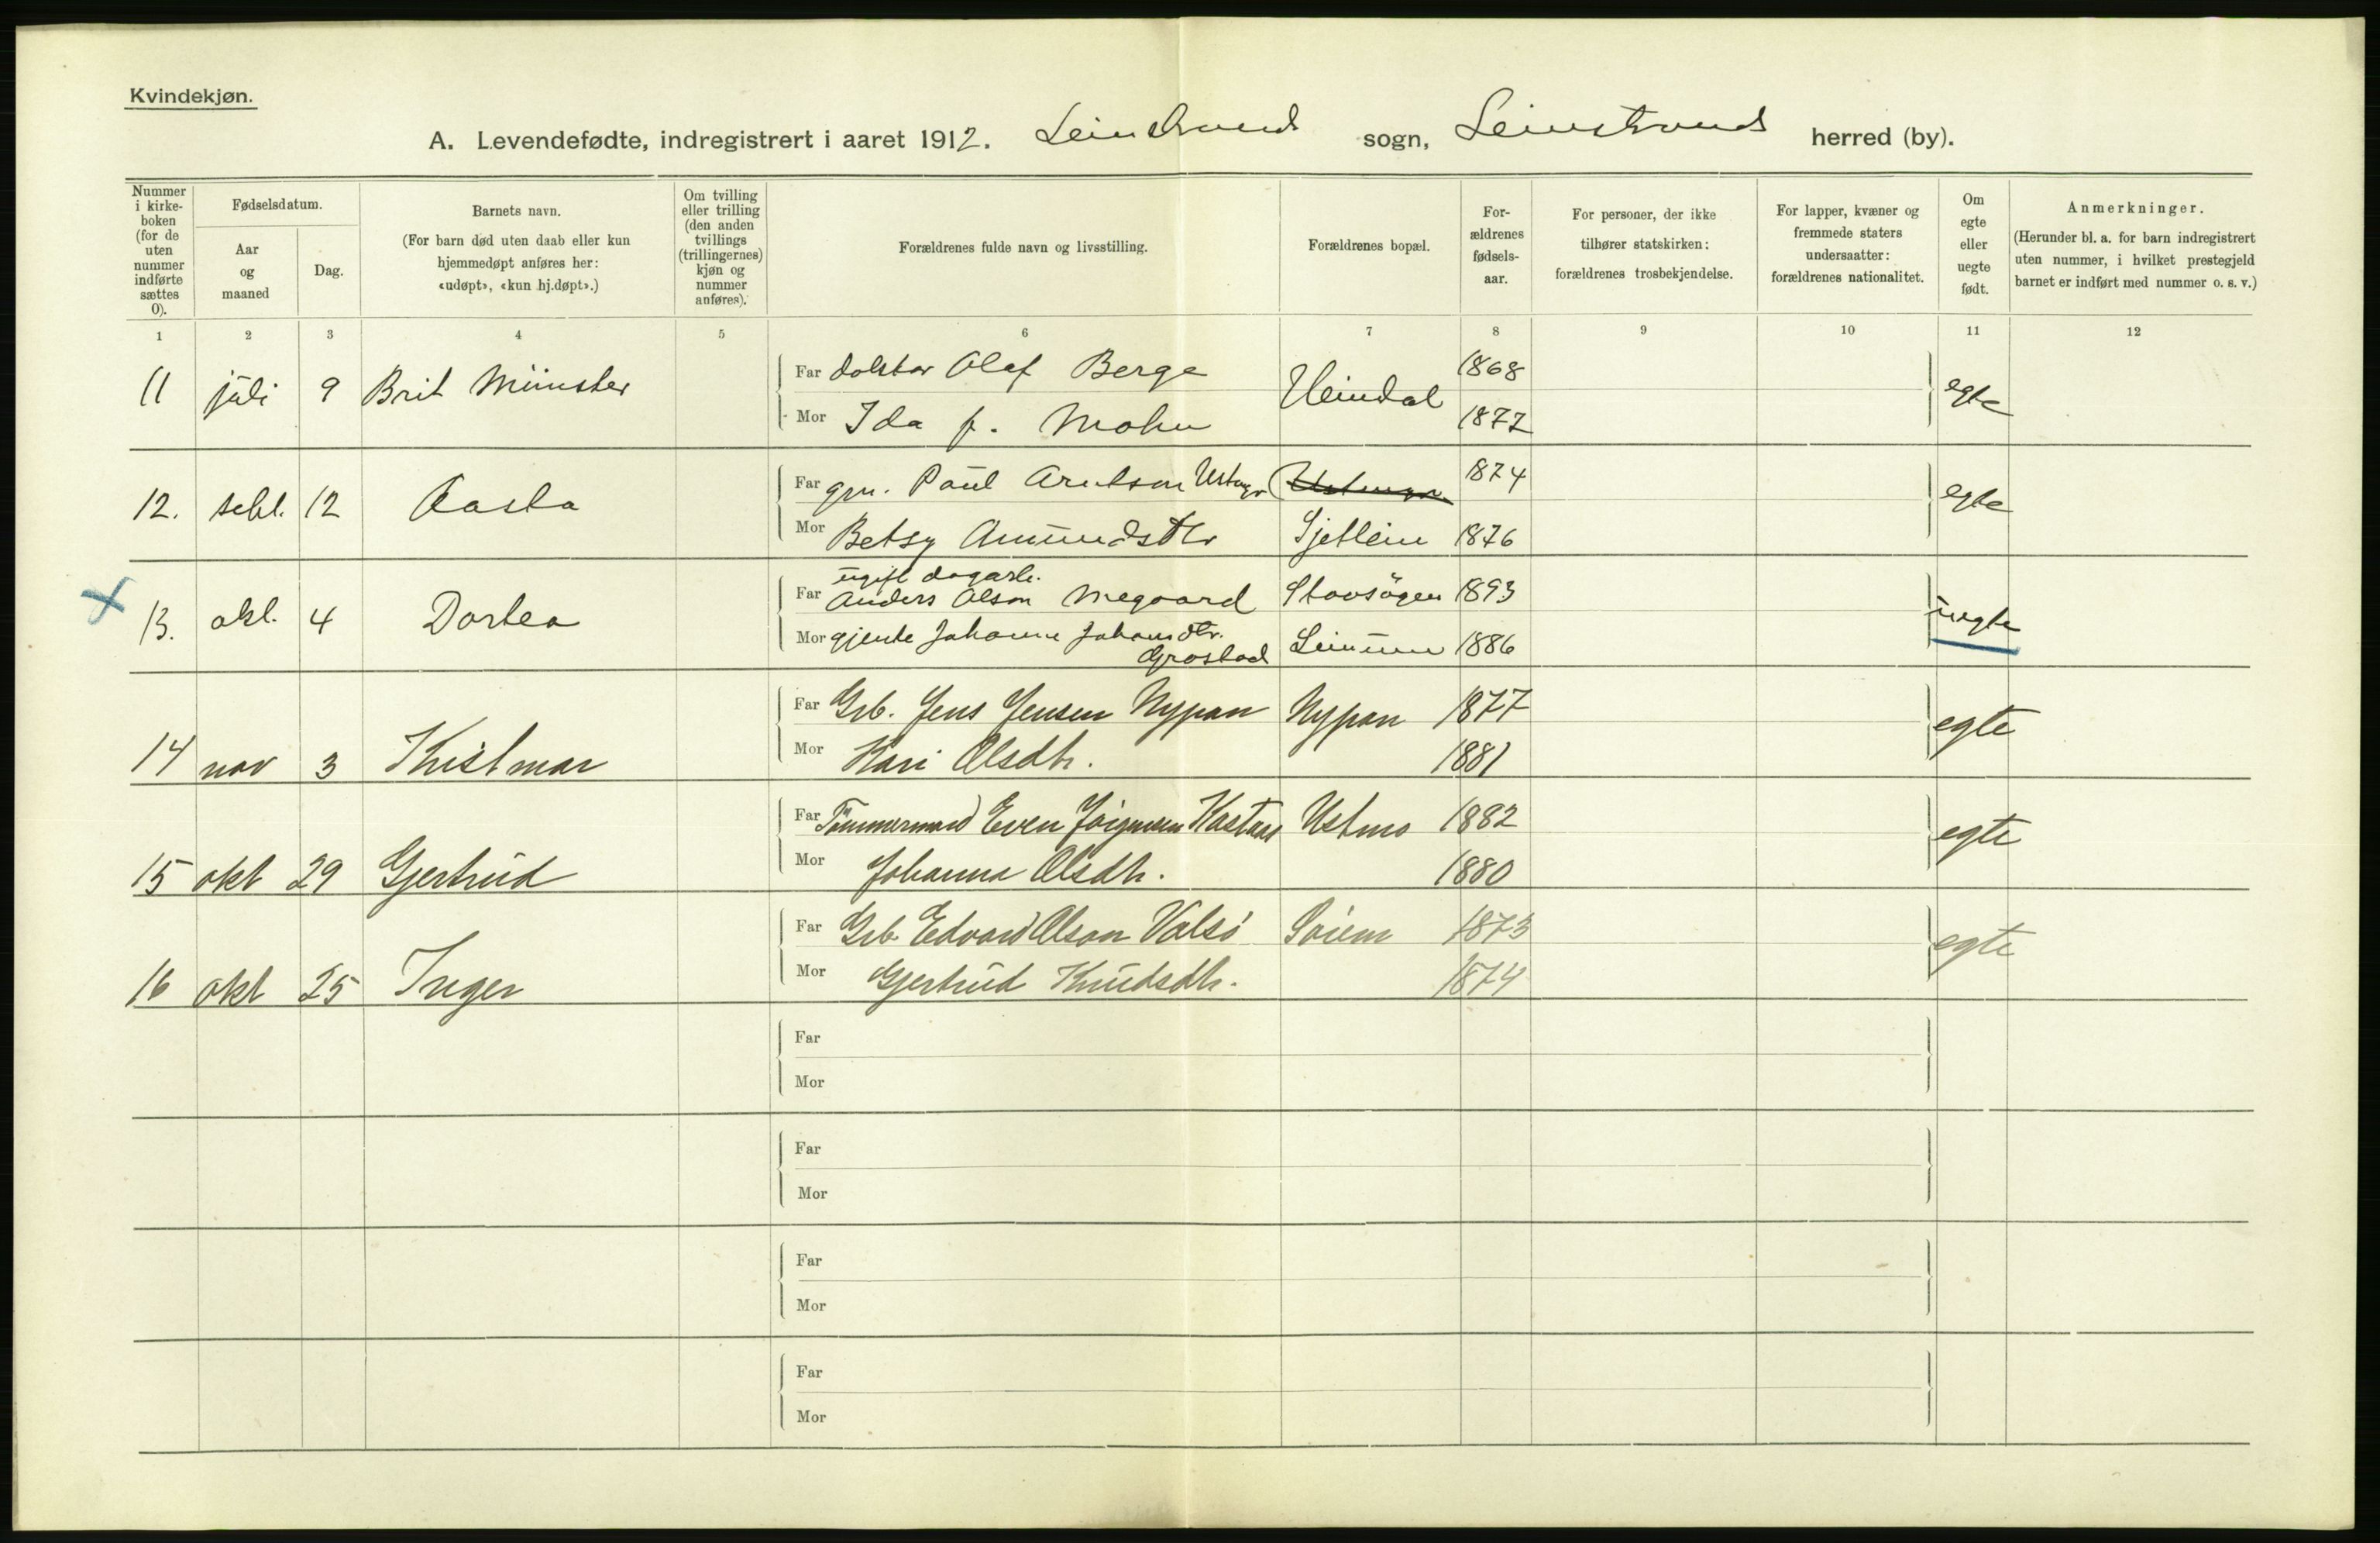 Kvindekjøn.
A. Levendefødte, indregistrert i aaret 1912. Leinstrand sogn, Leinstrand herred (by).
Nummer i kirke-boken (for de uten nummer indførte sættes 0).
Fødselsdatum.
Aar og maaned
Dag.
Barnets navn.
(For barn død uten daab eller kun hjemmedøpt anføres her: «udøpt», «kun hj.døpt».)
Om tvilling eller trilling (den anden tvillings (trillingernes) kjøn og nummer anføres).
Forældrenes fulde navn og livsstilling.
Forældrenes bopæl.
For-ældrenes fødsels-aar.
For personer, der ikke tilhører statskirken: forældrenes trosbekjendelse.
For lapper, kvæner og fremmede staters undersaatter: forældrenes nationalitet.
Om egte eller uegte født.
Anmerkninger.
(Herunder bl. a. for barn indregistrert uten nummer, i hvilket prestegjeld barnet er indført med nummer o. s. v.)
1 2 3 4 5 6 7 8 9 10 11 12
11 juli 9 Brit Münster Far doktor Olaf Berge Heimdal 1868 egte
Mor Ida f. Mohn 1877
12. sebt. 12 Aasta Far grn. Paul Arntsen 1874 egte
Mor Betsy Amundsdtr Sjetlein 1876
13. okt. 4 Dortea Far ugift dagarb.
Anders Olsen Megaard 1893 uegte
Mor gjente Johanna
Leinum 1886
14 nov 3 Kristmar Far Grb. Jens Jensen Nypan Nypan 1877 egte
Mor Kari Olsdtr. 1881
15 okt 29 Gjertrud Far Tømmermand Even Ustmo 1882 egte
Mor Johanna Olsdtr. 1880
16 okt 25 Inger Far Grb. Edvard Olsen Valsø Søiem 1873 egte
Mor Gjertrud Knudsdtr. 1874
Far
Mor
Far
Mor
Far
Mor
Far
Mor